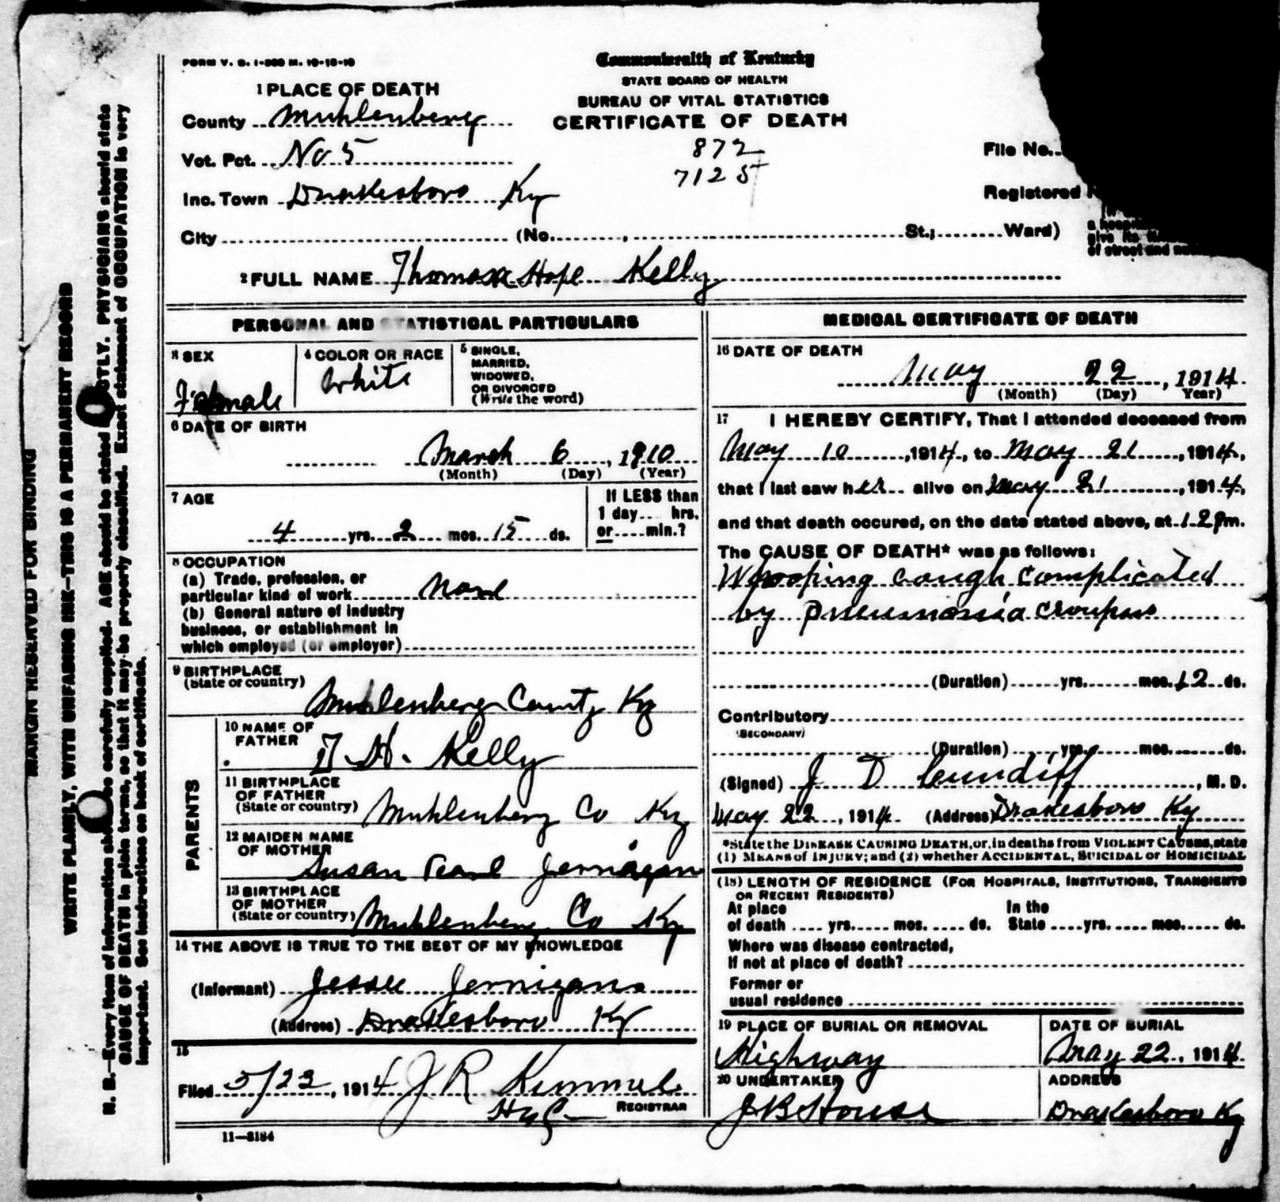 FORM V. S. 1-300 M. 10-18-10
Commonwealth of Kentucky
STATE BOARD OF HEALTH
BUREAU OF VITAL STATISTICS
CERTIFICATE OF DEATH
1 PLACE OF DEATH
County Muhlenberg
Vot. Pct. No 5
Inc. Town Drakesboro Ky
City (No. , St.; Ward)
872
7125
File No.
Registered
2 FULL NAME Thomas Hope Kelly
PERSONAL AND STATISTICAL PARTICULARS
3 SEX
Female
4 COLOR OR RACE
White
5 SINGLE,
MARRIED,
WIDOWED,
OR DIVORCED
(Write the word)
6 DATE OF BIRTH
March 6, 1910
(Month) (Day) (Year)
7 AGE
4 yrs. 2 mos. 15 ds.
If LESS than
1 day hrs.
or min.?
8 OCCUPATION
(a) Trade, profession, or
particular kind of work None
(b) General nature of industry
business, or establishment in
which employed (or employer)
9 BIRTHPLACE
(State or country) Muhlenberg County Ky
PARENTS
10 NAME OF
FATHER T. H. Kelly
11 BIRTHPLACE
OF FATHER
(State or country) Muhlenberg Co Ky
12 MAIDEN NAME
OF MOTHER
Susan Pearl Jernigan
13 BIRTHPLACE
OF MOTHER
(State or country) Muhlenberg Co Ky
14 THE ABOVE IS TRUE TO THE BEST OF MY KNOWLEDGE
(Informant) Jessee Jernigans
(Address) Drakesboro Ky
15
Filed 5/23, 1914 J R Kimmel
REGISTRAR
11-3184
MEDICAL CERTIFICATE OF DEATH
16 DATE OF DEATH
May 22, 1914
(Month) (Day) (Year)
17 I HEREBY CERTIFY, That I attended deceased from
May 10, 1914, to May 21, 1914,
that I last saw her alive on May 21, 1914,
and that death occured, on the date stated above, at 12 pm.
The CAUSE OF DEATH* was as follows:
Whooping cough complicated
by pneumonia croupus
(Duration) yrs. mos. 12 ds.
Contributory
(SECONDARY)
(Duration) yrs. mos. ds.
(Signed) J D Cundiff, M. D.
May 22, 1914. (Address) Drakesboro Ky
*State the DISEASE CAUSING DEATH, or, in deaths from VIOLENT CAUSES, state
(1) MEANS of INJURY; and (2) whether ACCIDENTAL, SUICIDAL or HOMICIDAL
(18) LENGTH OF RESIDENCE (FOR HOSPITALS, INSTITUTIONS, TRANSIENTS
OR RECENT RESIDENTS)
At place In the
of death yrs. mos. ds. State yrs. mos. ds.
Where was disease contracted,
If not at place of death?
Former or
usual residence
19 PLACE OF BURIAL OR REMOVAL
Highway
DATE OF BURIAL
May 22, 1914
20 UNDERTAKER
J B House
ADDRESS
Drakesboro Ky
MARGIN RESERVED FOR BINDING
WRITE PLAINLY, WITH UNFADING INK—THIS IS A PERMANENT RECORD
N. B.—Every item of information should be carefully supplied. AGE should be stated EXACTLY. PHYSICIANS should state
CAUSE OF DEATH in plain terms, so that it may be properly classified. Exact statement of OCCUPATION is very
important. See instructions on back of certificate.